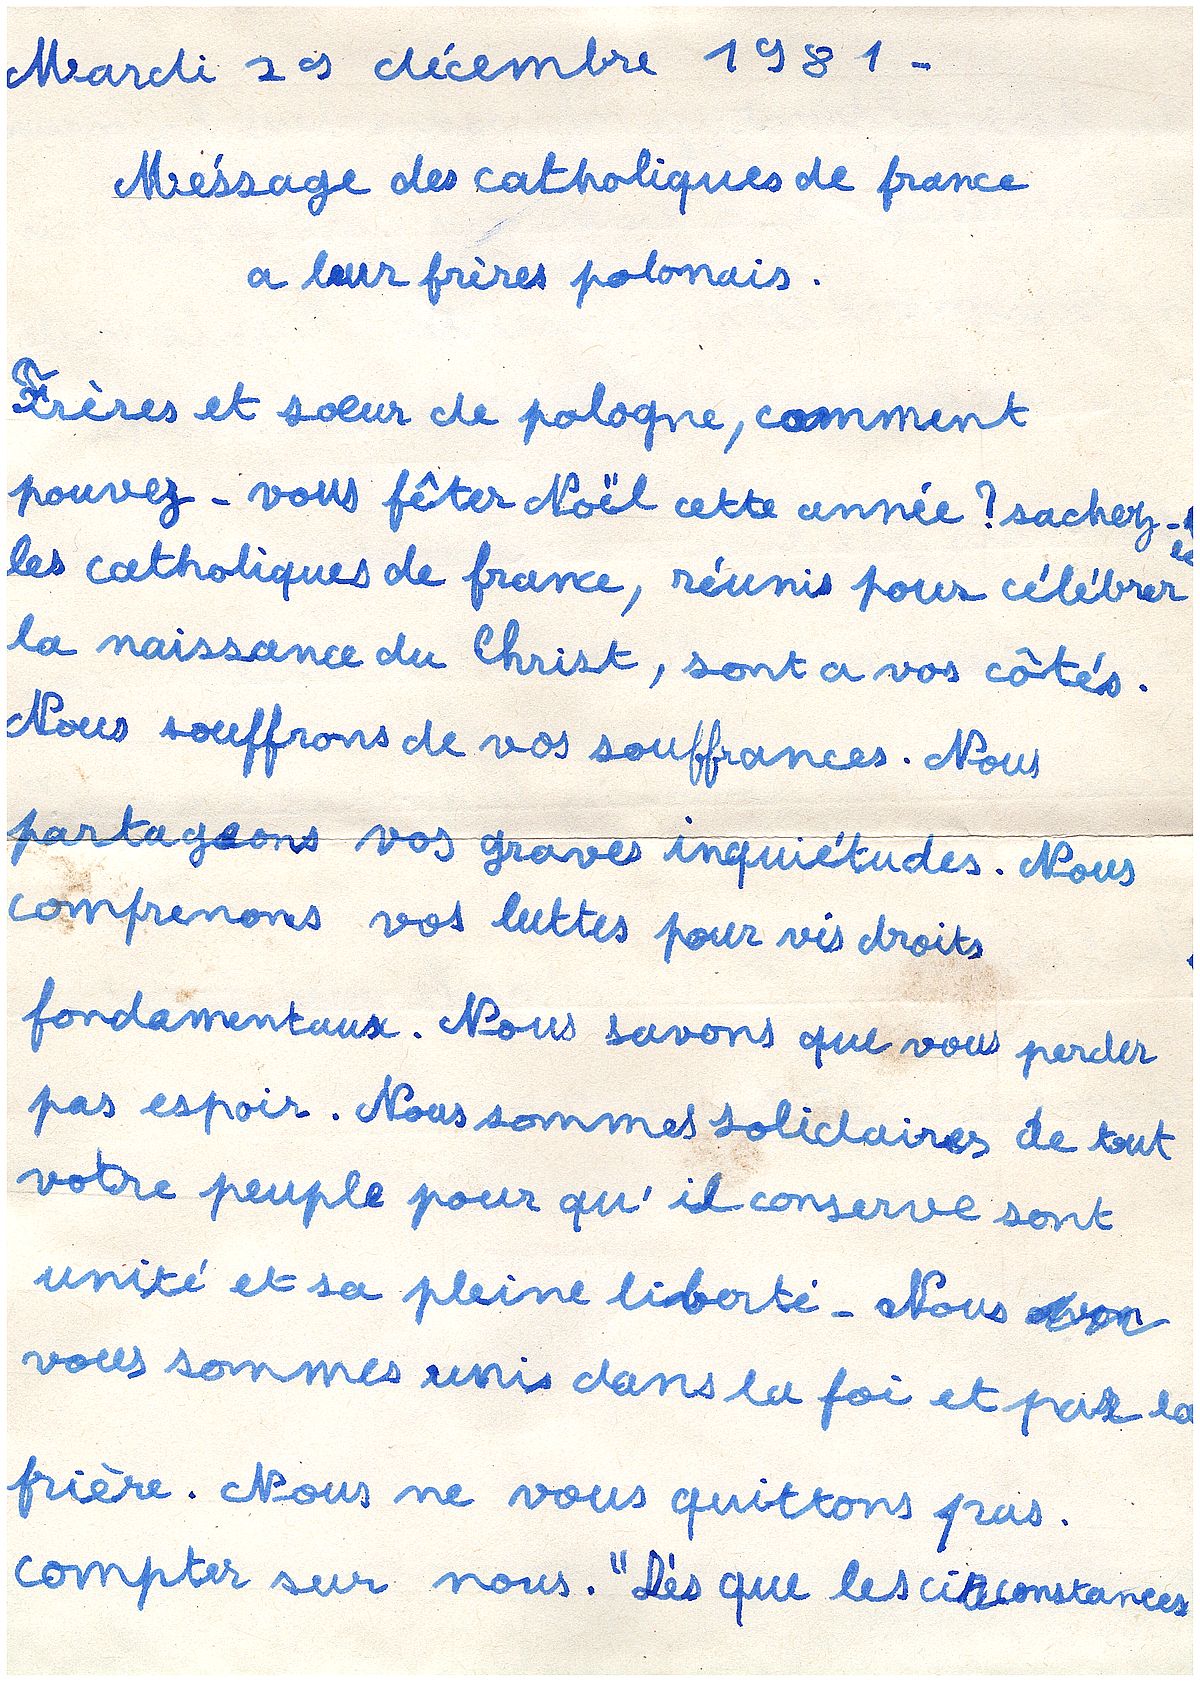 Mardi 29 décembre 1981 -
Méssage des catholiques de france
a leur frères polonais.
Frères et sœur de pologne, comment
pouvez - vous fêter Noël cette année ? sachez -
les catholiques de france, réunis pour célébrer
la naissance du Christ, sont a vos côtés.
Nous souffrons de vos souffrances. Nous
partageons vos graves inquiétudes. Nous
comprenons vos luttes pour vis droits
fondamentaux. Nous savons que vous perder
pas espoir. Nous sommes solidaires de tout
votre peuple pour qu' il conserve sont
unité et sa pleine liberté - Nous
vous sommes unis dans la foi et par la
frière. Nous ne vous quittons pas.
compter sur nous. "Dés que les circonstances